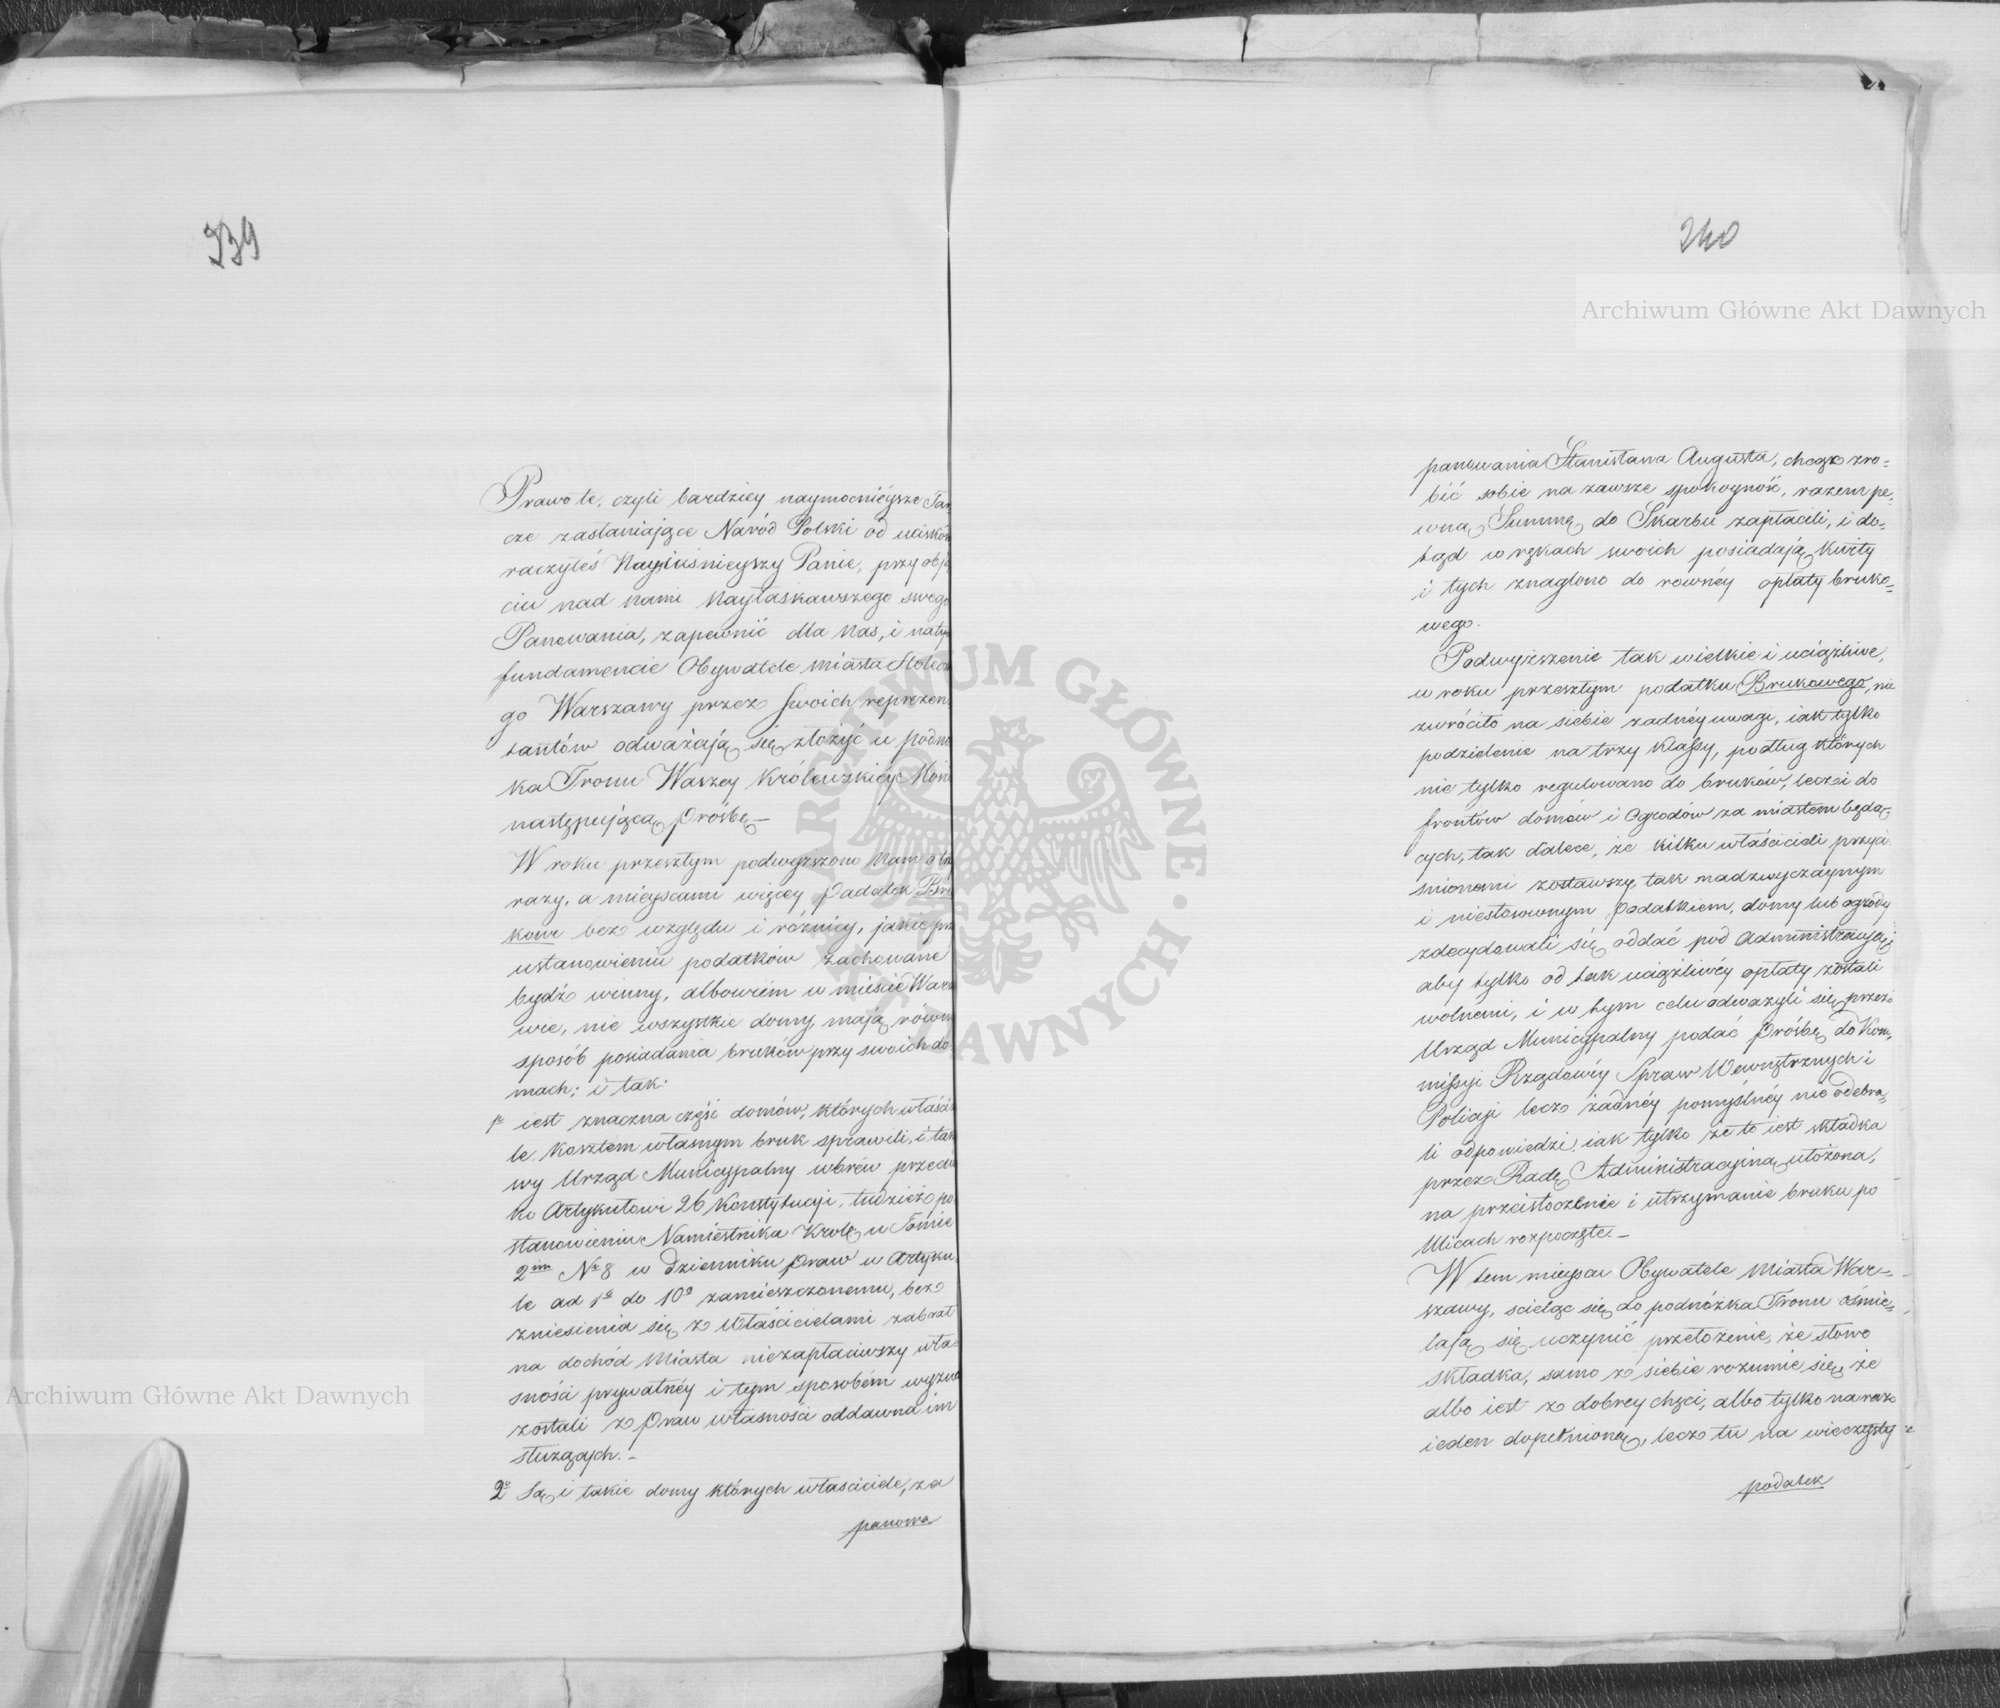 339
Prawo te, czyli bardziey naymocnieysze Tar
cze zasłaniaiące Naród Polski od ucisków
raczyłeś Nayiaśnieyszy Panie, przy obję
ciu nad nami Nayłaskawszego swego
Panowania, zapewnić dla Nas, i na tym
fundamencie Obywatele miasta Stołecz
go Warszawy przez swoich reprezen
tantów odważają się złożyć u podnó
ka Tronu Waszey Królewskiéy Mości
następującą prośbę –
W roku przeszłym podwyższono Nam
razy, a mieyscami więcey Podatek Bru
kowe bez względu i różnicy, jakie przy
ustanowieniu podatków zachowane
bydź winny, albowiém w mieście Warsza
wie, nie wszystkie domy mają równy
sposób posiadania bruków przy swoich do
mach; i tak:
1e iest znaczna część domów, których właści
le kosztem własnym bruk sprawili, i tako
wy Urząd Municypalny wbrew przeciw
ko Artykułowi 26 Konstytucyi, tudzież po
stanowieniu Namiestnika Król. w Tomie
2im Nr 8 w dzienniku praw w Artyku
le ad 1o do 10o zamieszczonemu, bez
zniesienia się z Właścicielami zabrał
na dochód Miasta niezapłaciwszy wła
sności prywatnéy i tym sposobém wyzuci
zostali z Praw własności oddawna im
służących. –
2e Są i takie domy których własciciele, za
panowa
240
panowania Stanisława Augusta, chcąc zro-
bić sobie na zawsze spokoyność, razem pe-
wną Summę do Skarbu zapłacili, i do-
tąd w rękach swoich posiadają kwity
i tych znaglono do rownéy opłaty bruko-
wego.
Podwyższenie tak wielkie i uciążliwe,
w roku przeszłym podatku Brukowego, nie
zwróciło na siebie żadnéy uwagi, iak tylko
podzielenie na trzy klassy, podług których
nie tylko regulowano do bruków, lecz i do
frontów domów i Ogrodów za miastem będą-
cych, tak dalece, że kilku właścicieli przyci
śnionemi zostawszy tak nadzwyczaynym
i niestosownym Podatkiem, domy lub ogrody
zdecydowali się oddać pod Administracyą,
aby tylko od tak uciążliwéy opłaty zostali
wolnemi, i w tym celu odważyli się przez
Urząd Municypalny podać Prośbę do Kom-
missyi Rządowéy Spraw Wewnętrznych i
Policyi lecz żadnéy pomyślnéy nie odebra-
li odpowiedzi, iak tylko że to iest składka
przez Radę Administracyiną ułożona,
na przeistoczenie i utrzymanie bruku po
Ulicach rozpoczęte. –
W tem mieyscu Obywatele Miasta War-
szawy, scieląc się do podnóżka Tronu ośmie-
laią się uczynić przełożenie, że słowo
składka, samo z siebie rozumie się, że
albo iest z dobrey chęci, albo tylko na raz
ieden dopełnioną, lecz tu na wieczysty
podatek
Archiwum Główne Akt Dawnych
Archiwum Główne Akt Dawnych
ARCHIWUM GŁÓWNE AKT DAWNYCH